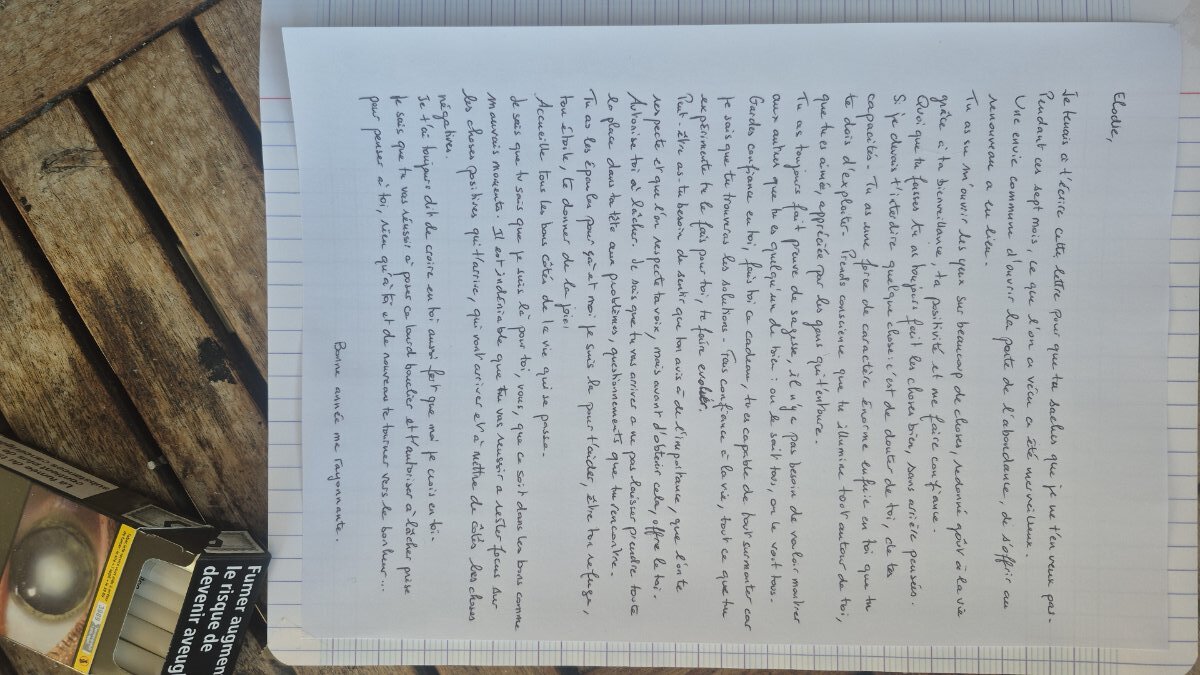 Elodie,
Je tenais à t'écrire cette lettre pour que tu saches que je ne t'en veux pas.
Pendant ces sept mois, ce que l'on a vécu a été merveilleux.
Une envie commune d'ouvrir la porte de l'abondance, de s'offrir au
renouveau a eu lieu.
Tu as su m'ouvrir les yeux sur beaucoup de choses, redonné goût à la vie
grâce à ta bienveillance, ta positivité et me faire confiance.
Quoi que tu fasses tu as toujours fait les choses bien, sans arrière pensées.
Si je devais t'interdire quelque chose : c'est de douter de toi, de tes
capacités. Tu as une force de caractère énorme enfouie en toi que tu
te dois d'exploiter. Prends conscience que tu illumine tout autour de toi,
que tu es aimée, appréciée par les gens qui t'entoure.
Tu as toujours fait preuve de sagesse, il n'y a pas besoin de vouloir montrer
aux autres que tu es quelqu'un de bien : on le sait tous, on le voit tous.
Gardes confiance en toi, fais toi ce cadeau, tu es capable de tout surmonter car
je sais que tu trouveras les solutions. Fais confiance à la vie, tout ce que tu
expérimente tu le fais pour toi, te faire evoluer.
Peut-être as-tu besoin de sentir que ton avis à de l'importance, que l'on te
respecte et que l'on respecte ta voix, mais avant d'obtenir cela, offre le toi.
Autorise toi à lâcher. Je sais que tu vas arriver a ne pas laisser prendre toute
la place dans ta tête aux problèmes, questionnements que tu rencontre.
Tu as les épaules pour ça et moi je suis là pour t'aider, être ton refuge,
ton étoile, te donner de la joie.
Accueille tous les bons côtés de la vie qui se passe.
Je sais que tu sais que je suis là pour toi, vous, que ce soit dans les bons comme
mauvais moments. Il est indéniable que tu vas reussir a rester focus sur
les choses positives qui t'arrive, qui vont arriver et à mettre de côtés les choses
négatives.
Je t'ai toujours dit de croire en toi aussi fort que moi je crois en toi.
Je sais que tu vas réussir à poser ce lourd bouclier et t'autoriser à lâcher prise
pour penser à toi, rien qu'à toi et de nouveau te tourner vers le bonheur..
Bonne année ma rayonnante.
Fumer augmen
le risque de
devenir aveugl